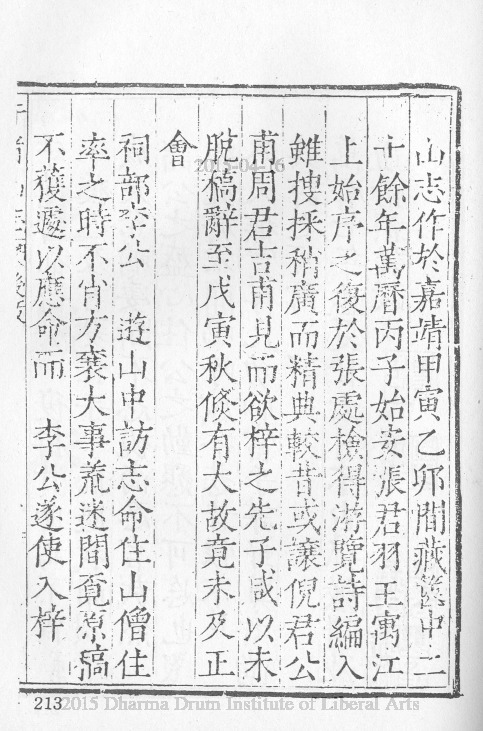 山志作於嘉靖甲寅乙卯間藏篋中二
十餘年萬曆丙子始安張君羽王寓江
上始序之復於張處檢得游覽詩編入
雖搜採稍廣而精典較昔或讓倪君公
甫周君吉甫見而欲梓之先子咸以未
脫稿辭至戊寅秋倐有大故竟未及正
會
祠部李公 遊山中訪志命住山僧住
率之時不肖方襄大事荒迷間覔原稿
不獲遽以應命而 李公遂使入梓
2015-04-16
213
2015 Dharma Drum Institute of Liberal Arts